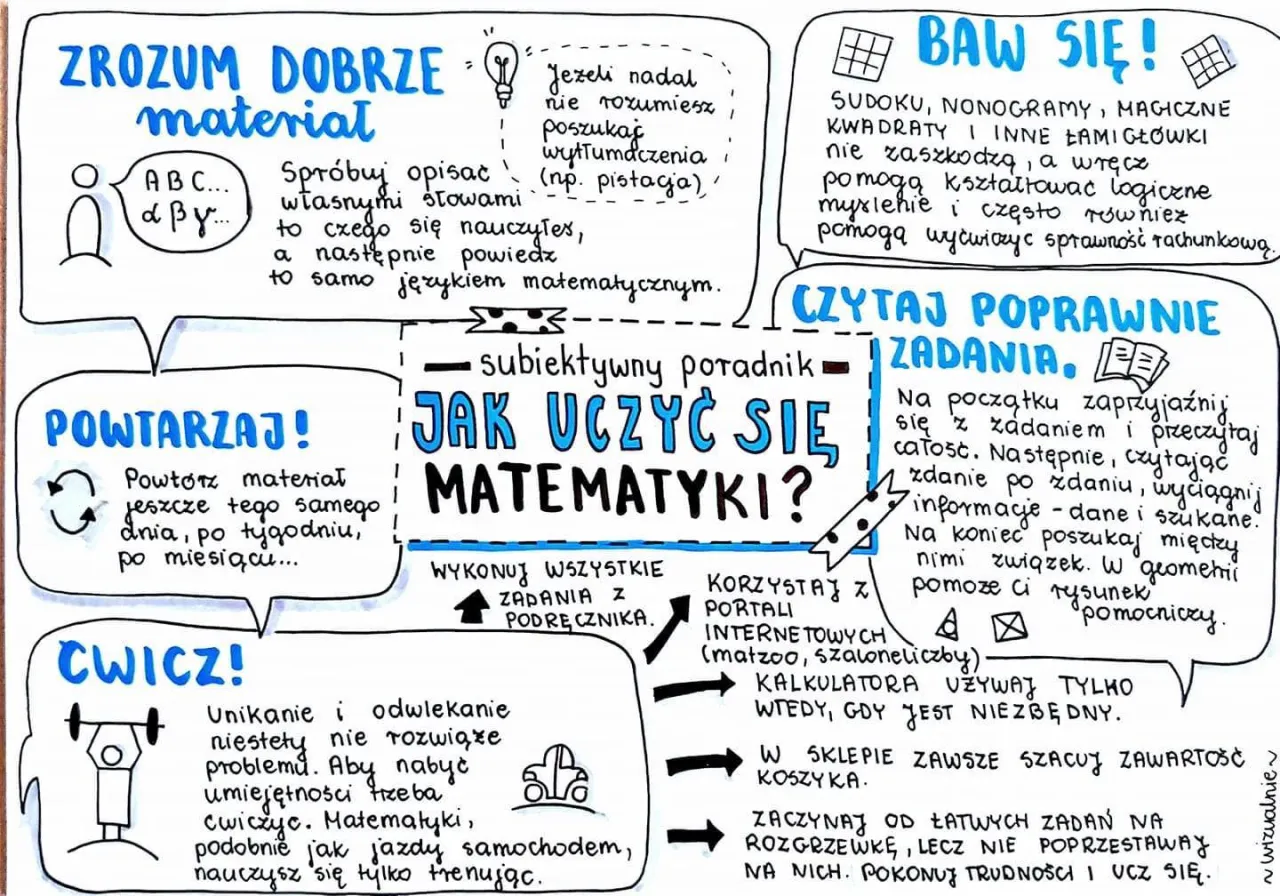 ZROZUM DOBRZE
materiał
ABC...
α β γ...
Spróbuj opisać
własnymi słowami
to czego się nauczyłeś,
a następnie powiedz
to samo językiem matematycznym.
Jeżeli nadal
nie rozumiesz
poszukaj
wytłumaczenia
(np. pistacja)
BAW SIĘ!
SUDOKU, NONOGRAMY, MAGICZNE
KWADRATY I INNE ŁAMIGŁÓWKI
nie zaszkodzą, a wręcz
pomogą kształtować logiczne
myślenie i często również
pomogą wyćwiczyć sprawność rachunkową.
subiektywny poradnik
JAK UCZYĆ SIĘ
MATEMATYKI?
CZYTAJ POPRAWNIE
ZADANIA.
Na początku zaprzyjaźnij
się z zadaniem i przeczytaj
całość. Następnie, czytając
zdanie po zdaniu, wyciągnij
informacje - dane i szukane.
Na koniec poszukaj między
nimi związek. W geometrii
pomoże ci rysunek
pomocniczy.
POWTARZAJ!
Powtórz materiał
jeszcze tego samego
dnia, po tygodniu,
po miesiącu...
ĆWICZ!
Unikanie i odwlekanie
niestety nie rozwiąże
problemu. Aby nabyć
umiejętności trzeba
ćwiczyć. Matematyki,
podobnie jak jazdy samochodem,
nauczysz się tylko trenując.
WYKONUJ WSZYSTKIE
ZADANIA Z
PODRĘCZNIKA.
KORZYSTAJ Z
PORTALI
INTERNETOWYCH
(matzoo, szaloneliczby)
KALKULATORA UŻYWAJ TYLKO
WTEDY, GDY JEST NIEZBĘDNY.
W SKLEPIE ZAWSZE SZACUJ ZAWARTOŚĆ
KOSZYKA.
ZACZYNAJ OD ŁATWYCH ZADAŃ NA
ROZGRZEWKĘ, LECZ NIE POPRZESTAWAJ
NA NICH. POKONUJ TRUDNOŚCI I UCZ SIĘ.
~ wizualnie ~